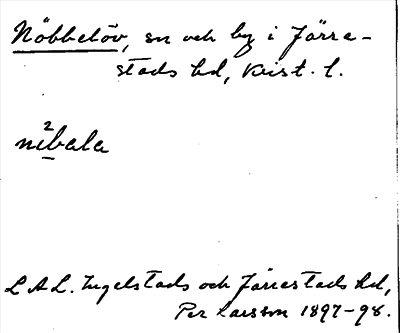 Nöbbelöv, sn och by i Järre-
stads hd, Krist. l.
nibala
L A L. Ingelstads och Järrestads hd,
Per Larsson 1897-98.